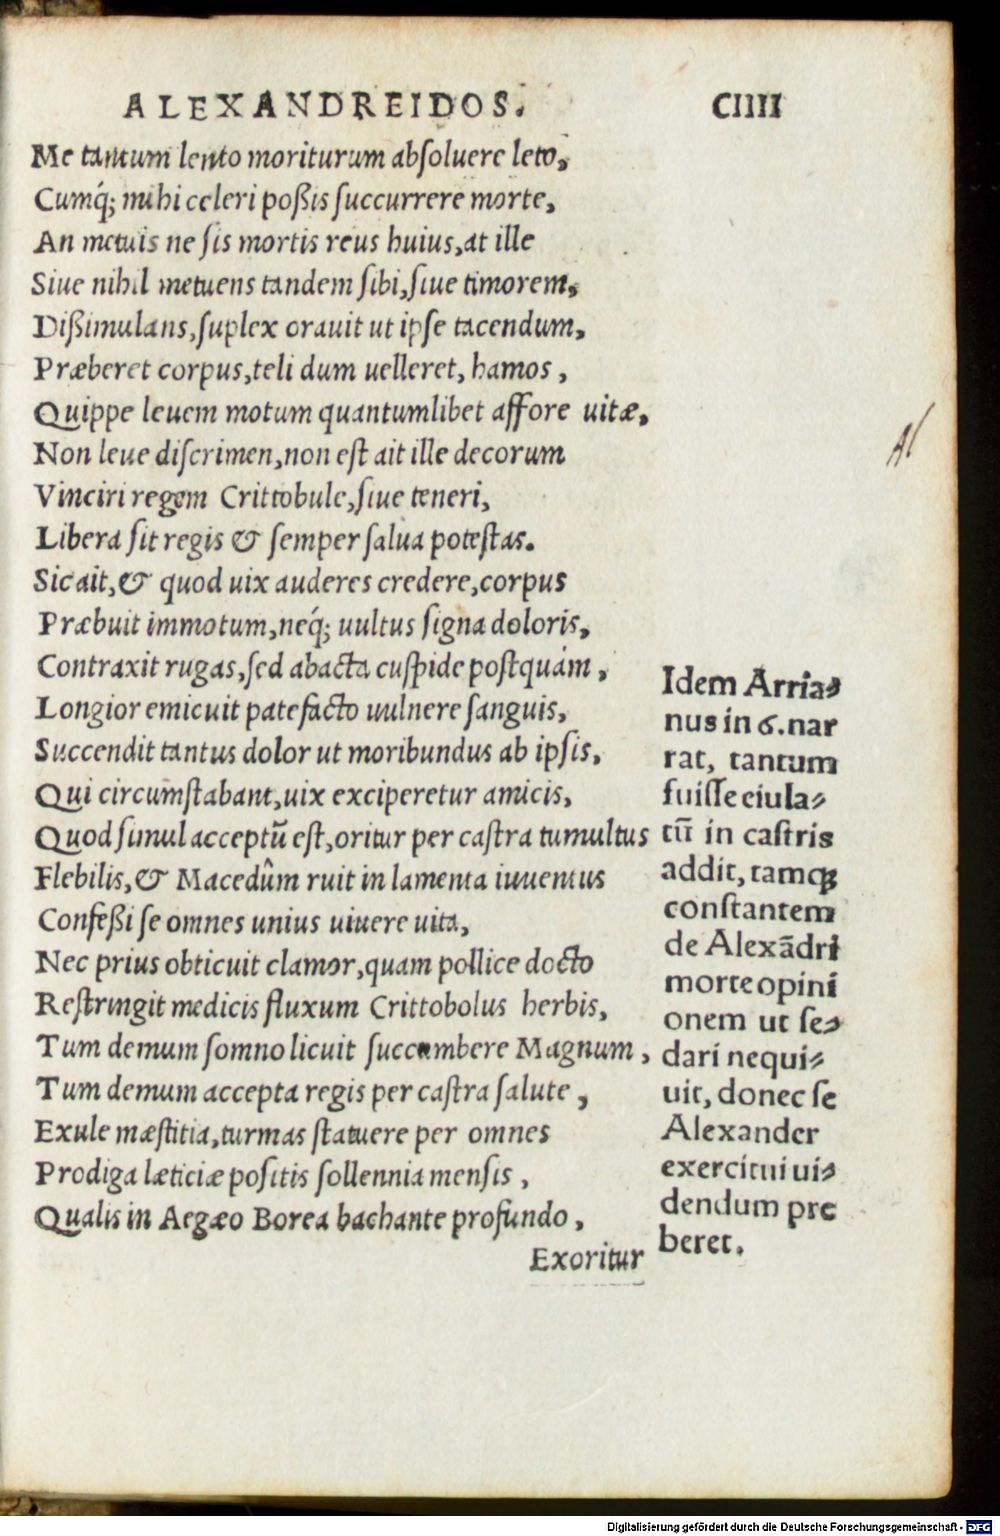 ALEXANDREIDOS. CIIII
Me tantum lento moriturum absoluere leto,
Cumq́; mihi celeri poßis succurrere morte,
An metuis ne sis mortis reus huius, at ille
Siue nihil metuens tandem sibi, siue timorem,
Dißimulans, suplex orauit ut ipse tacendum,
Præberet corpus, teli dum uelleret, hamos,
Quippe leuem motum quantumlibet affore uitæ,
Non leue discrimen, non est ait ille decorum
Vinciri regem Crittobule, siue teneri,
Libera sit regis & semper salua potestas.
Sic ait, & quod uix auderes credere, corpus
Præbuit immotum, neq́; uultus signa doloris,
Contraxit rugas, sed abacta cuspide postquám,
Longior emicuit patefacto uulnere sanguis,
Succendit tantus dolor ut moribundus ab ipsis,
Qui circumstabant, uix exciperetur amicis,
Quod simul acceptũ est, oritur per castra tumultus
Flebilis, & Macedûm ruit in lamenta iuuentus
Confeßi se omnes unius uiuere uita,
Nec prius obticuit clamor, quam pollice docto
Restringit medicis fluxum Crittobolus herbis,
Tum demum somno licuit succumbere Magnum,
Tum demum accepta regis per castra salute,
Exule mæstitia, turmas statuere per omnes
Prodiga læticiæ positis sollennia mensis,
Qualis in Aegæo Borea bachante profundo,
Exoritur
Idem Arria-
nus in 6. nar
rat, tantum
fuisse eiula-
tũ in castris
addit, tamqꝫ
constantem
de Alexãdri
morte opini
onem ut se-
dari nequi-
uit, donec se
Alexander
exercitui ui-
dendum pre
beret.
Al
Digitalisierung gefördert durch die Deutsche Forschungsgemeinschaft - DFG